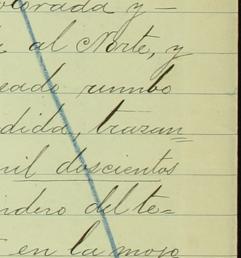 olorada y -
al Norte, y
eado rumbo
dida, trazan=
mil doscientos
ndero del te=
en la mojo